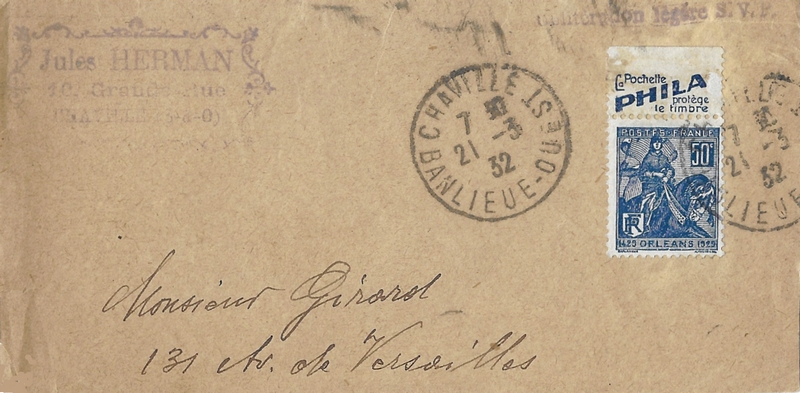 Jules HERMAN
10, Grande Rue
CHAVILLE (S-&-O)
oblitération légère S.V.P.
CHAVILLE
7
21
-3
32
BANLIEUE-OUEST
La Pochette
PHILA
protège
le timbre
POSTES-FRANCE
50c
RF
1429 ORLEANS 1929
7
21
-3
32
Monsieur Girard
131 Av. de Versailles